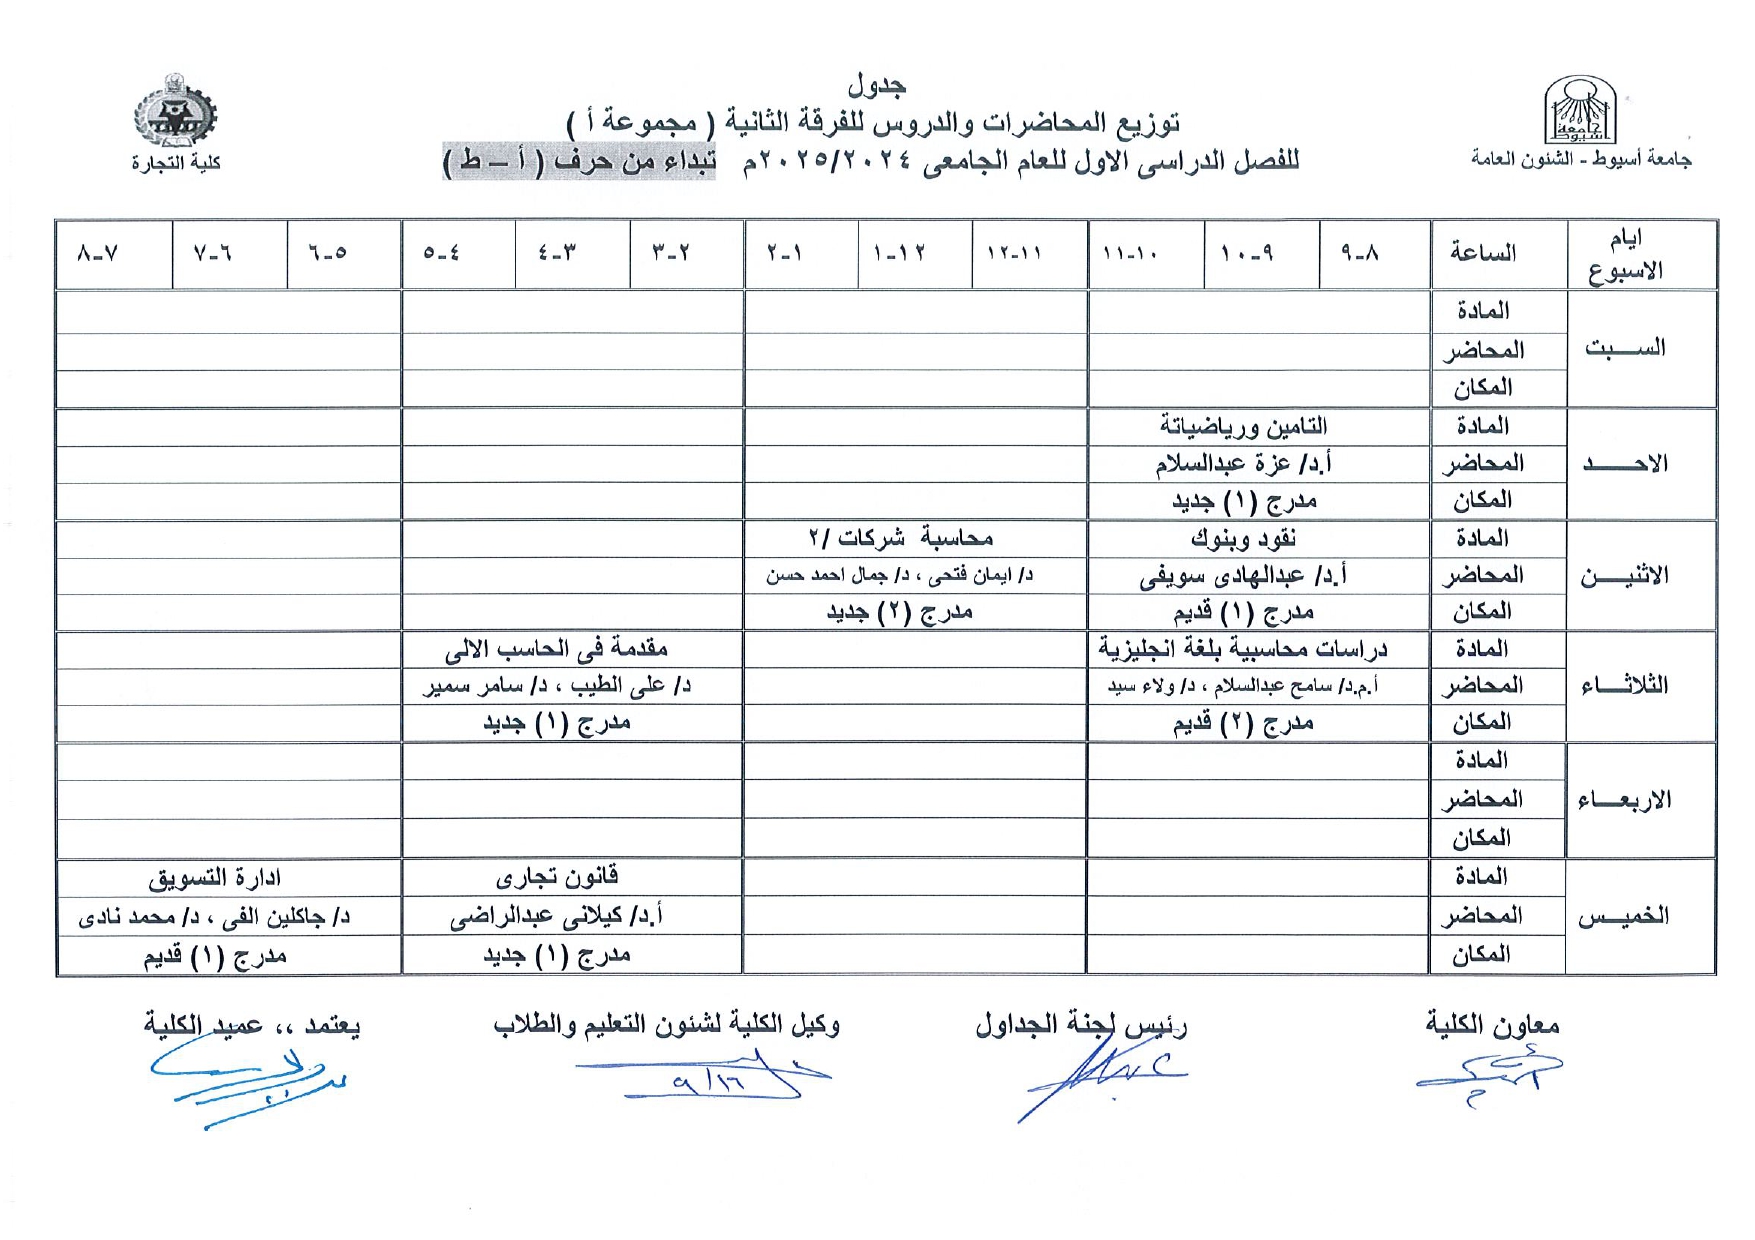 جدول
توزيع المحاضرات والدروس للفرقة الثانية ( مجموعة أ )
للفصل الدراسى الاول للعام الجامعى ٢٠٢٥/٢٠٢٤م تبداء من حرف ( أ – ط )
جامعة أسيوط
جامعة أسيوط - الشئون العامة
كلية التجارة
ايام الاسبوع الساعة ٨-٩ ٩-١٠ ١٠-١١ ١١-١٢ ١٢-١ ١-٢ ٢-٣ ٣-٤ ٤-٥ ٥-٦ ٦-٧ ٧-٨
السبت
المادة
المحاضر
المكان
الاحد
المادة التامين ورياضياتة
المحاضر أ.د/ عزة عبدالسلام
المكان مدرج (١) جديد
الاثنين
المادة نقود وبنوك محاسبة شركات /٢
المحاضر أ.د/ عبدالهادى سويفى د/ ايمان فتحى ، د/ جمال احمد حسن
المكان مدرج (١) قديم مدرج (٢) جديد
الثلاثاء
المادة دراسات محاسبية بلغة انجليزية مقدمة فى الحاسب الالى
المحاضر أ.م.د/ سامح عبدالسلام ، د/ ولاء سيد د/ على الطيب ، د/ سامر سمير
المكان مدرج (٢) قديم مدرج (١) جديد
الاربعاء
المادة
المحاضر
المكان
الخميس
المادة قانون تجارى ادارة التسويق
المحاضر أ.د/ كيلانى عبدالراضى د/ جاكلين الفى ، د/ محمد نادى
المكان مدرج (١) جديد مدرج (١) قديم
معاون الكلية رئيس لجنة الجداول وكيل الكلية لشئون التعليم والطلاب يعتمد ،، عميد الكلية
٩/١٦